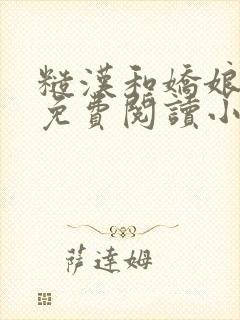 糙漢和嬌娘
免費閱讀小
薩達姆